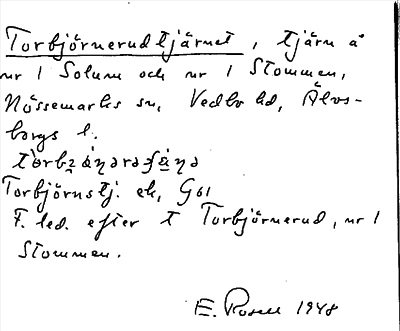 Torbjörnerudtjärnet, tjärn å
nr 1 Solum och nr 1 Stommen,
Nössemarks sn, Vedbo hd, Älvs-
borgs l.
Torbjörnstj. ek, G 61
F. led. efter t Torbjörnerud, nr 1
Stommen.
E. Rosell 1948